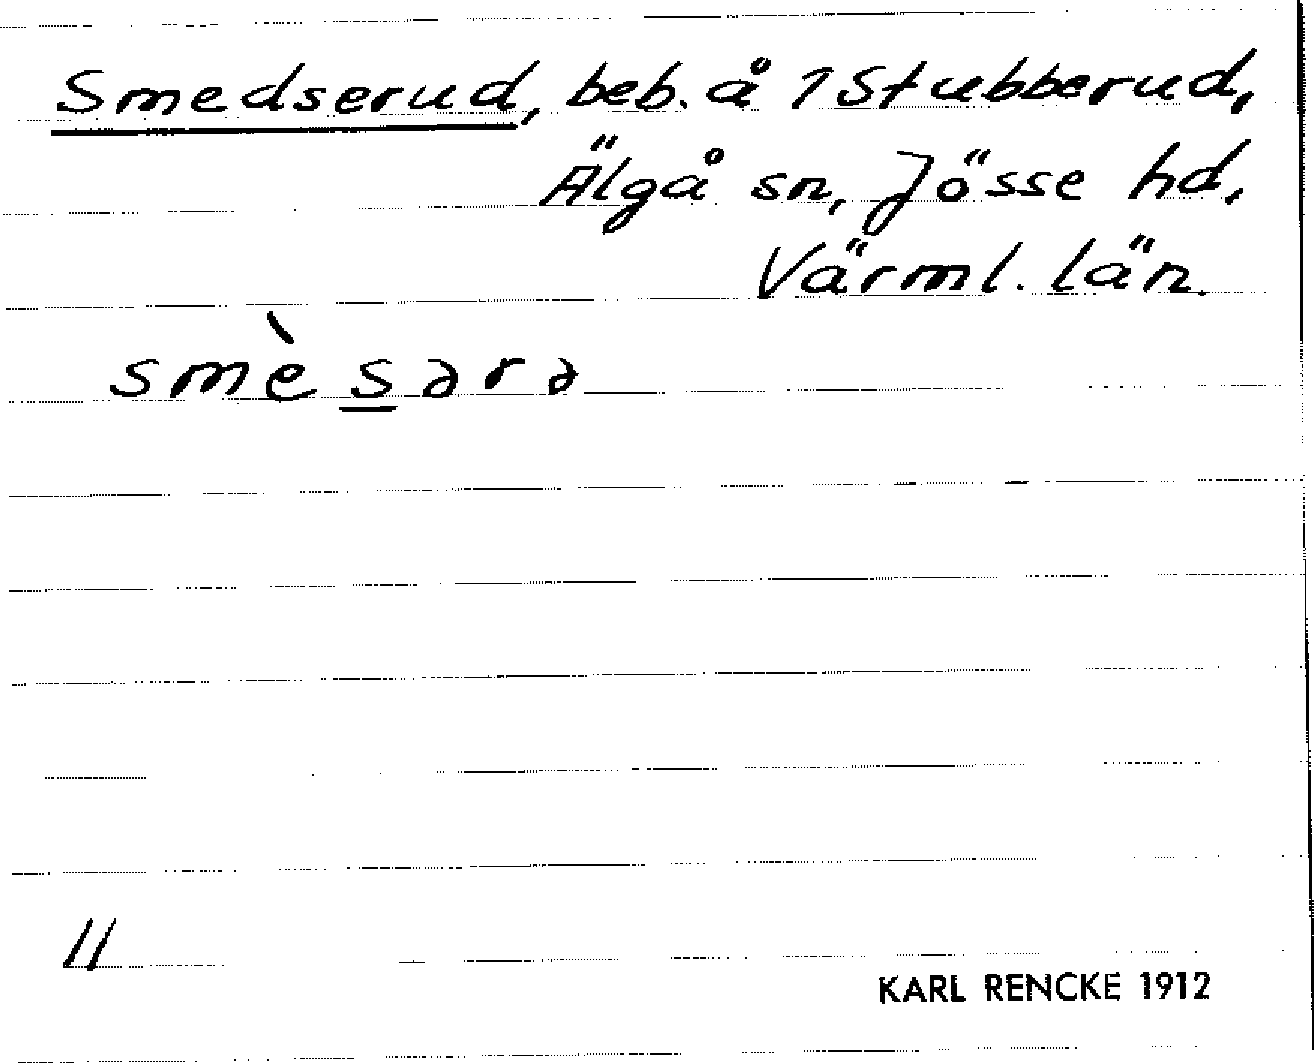 Smedserud, beb. å 1 Stubberud,
Älgå sn, Jösse hd,
Värml. län.
smè̀s̲ərə
11
KARL RENCKE 1912